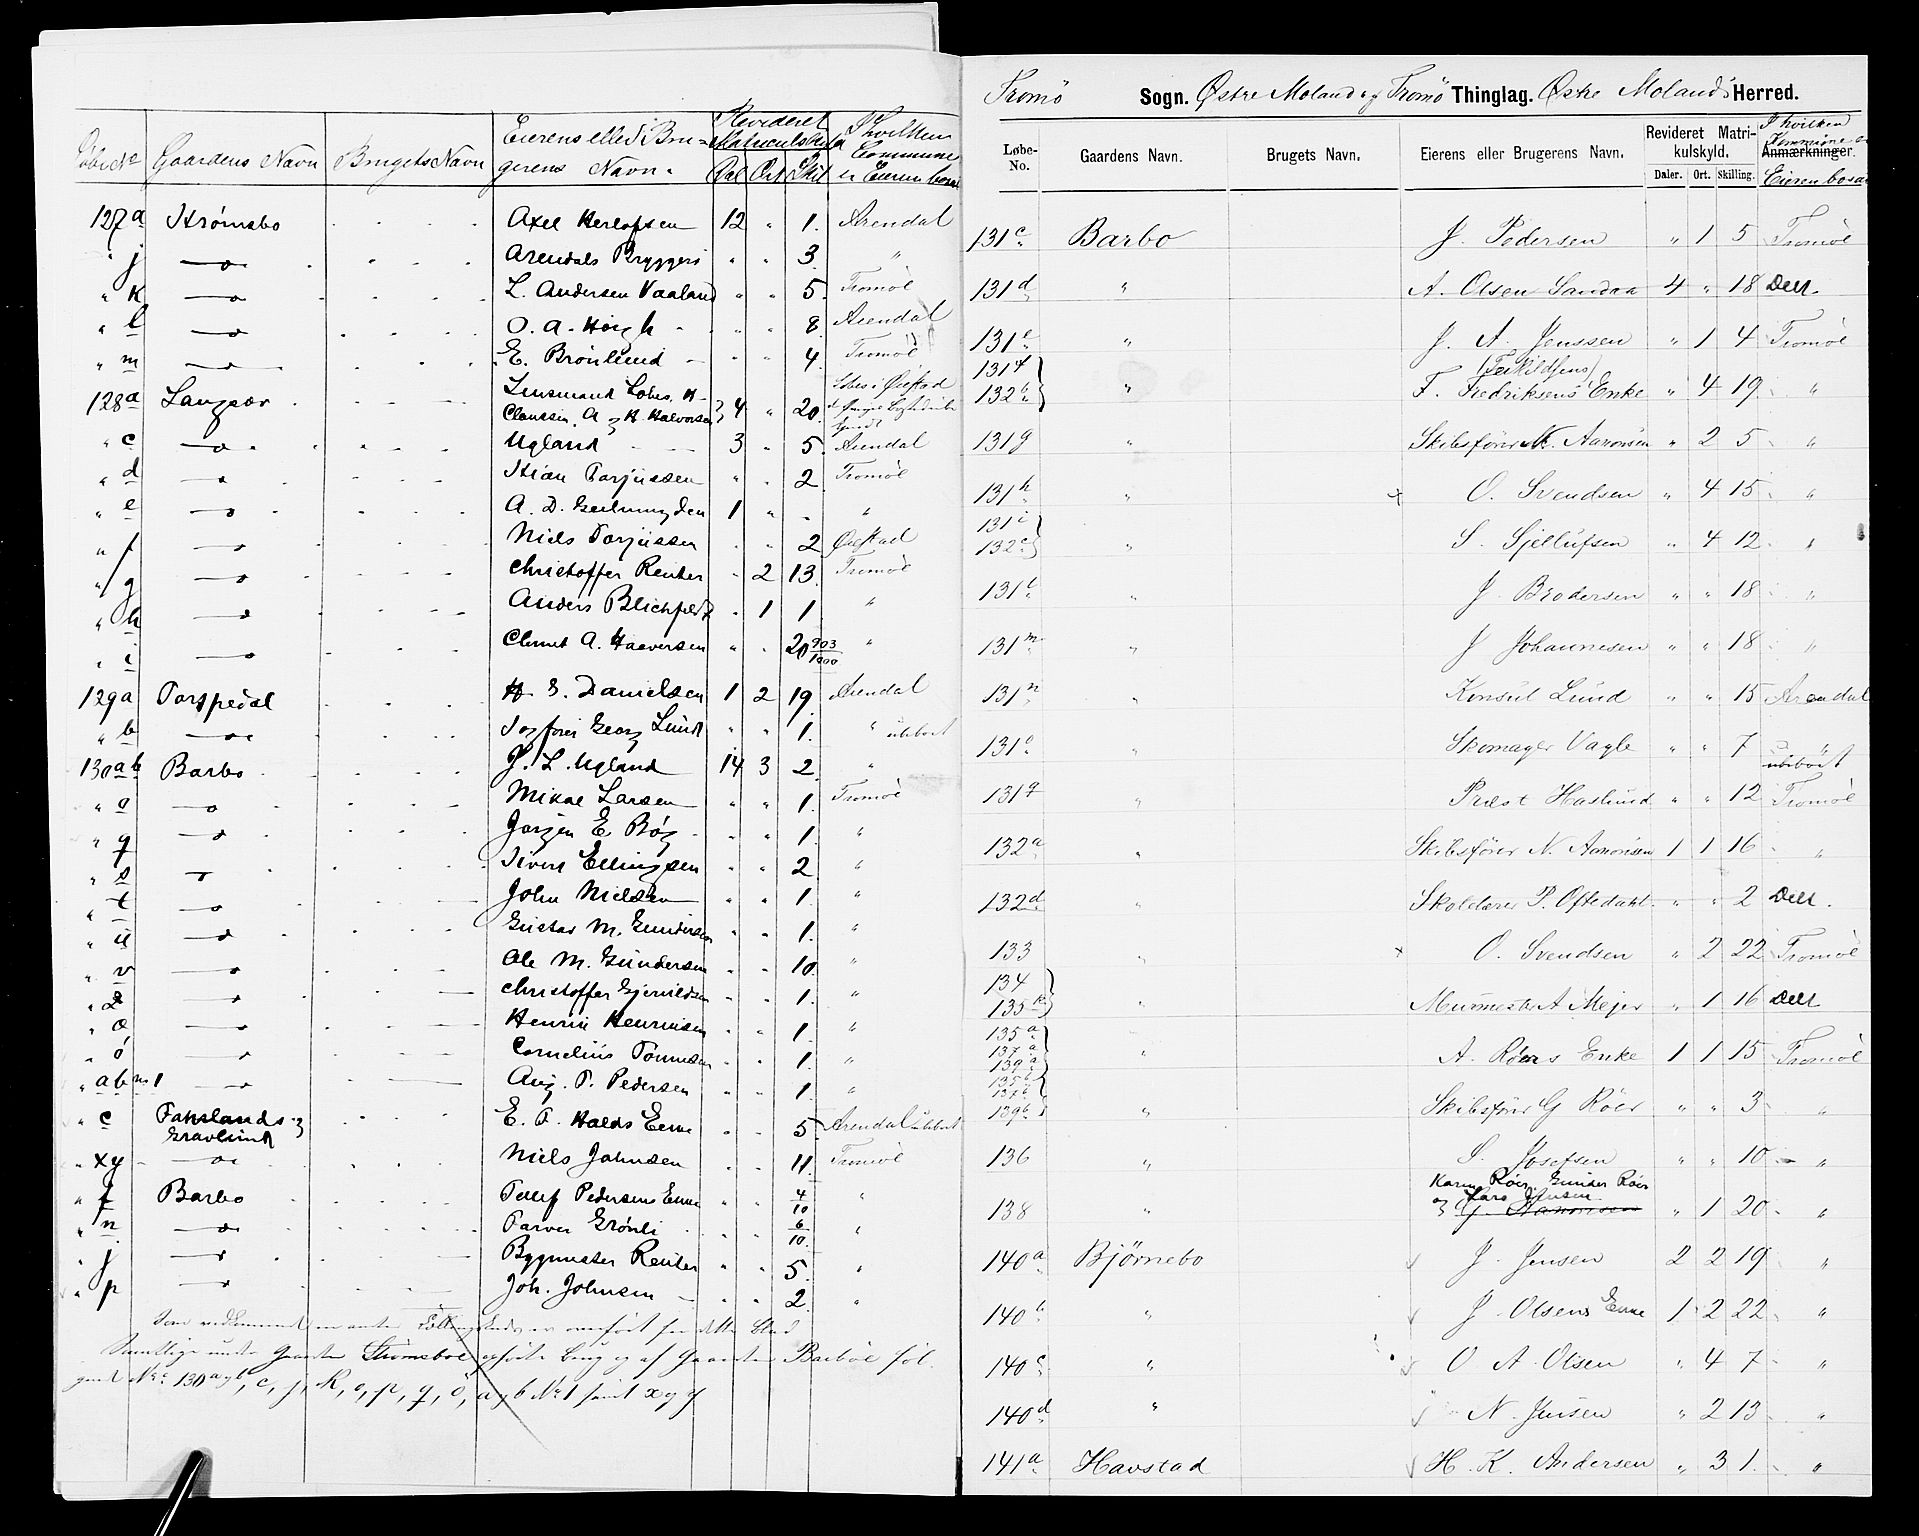 Løbe No Gaardens Navn Brugets Navn Eierens eller Brugerens Navn. Revideret Matriculskyld Dal Ort Skil I hvilken Commune er Eieren bosat
127a Strömsbo Axel Herlofsen 12 " 1. Arendal
" j —"— Arendals Bryggeri " " 3. "
" k —"— L. Andersen Vaaland " " 5. Tromöe
" l —"— O. A. Höigh " " 8. Arendal
" m —"— E. Brönlund " " 4. Tromöe
128a Langsæv Lensmand
Claussen, A og H Halvorsen 4 " 20.
" c —"— Ugland 3 " 5. Arendal
" d —"— Stian Torjussen " " 2. Tromöe
" e —"— A. D. 1 " - "
" f —"— Niels Torjussen " " 2 Öiestad
" g —"— Christoffer Reuter " 2 13. Tromöe
" h —"— Anders Blichfeldt " 1 1. "
" i —"— A. Halvorsen " " 20 903/1000 "
129a Torspedal H. E. Danielsen 1 2 19. Arendal
" b —"— Georg Lund " " 1. " ubeboet
130ab Barbo J. L. Ugland 14 3 2. "
" a —"— Mikal Larsen " " 1. Tromöe
" q —"— Jörgen E. Bög " " 1. "
" s —"— Sivert Ellingsen " " 2 "
" t —"— John Nielsen " " 1. "
" u —"— Gustav M. Gundersen " " 1. "
" v —"— Ole M. Gundersen " " 10. "
" z —"— Christoffer Gjeruldsen " " 1. "
" æ —"— Henrik Henriksen " " 1. "
" ö —"— Cornelius Tönnesen " " 1. "
" ab no 1 —"— Aug. T. Pedersen " " 1. "
" c Fakslands og Gravlund E. T. Holds Enke " " 5. Arendal ubeboet
" xy —"— Niels Johnsen " " 11. Tromöe
" f Barbo Tellef Pedersens Enke 4/10 "
" n —"— Farver Grönli 6/10. "
" j —"— Bygmester Reuter " " 5. "
" p —"— Joh. Johnsen " " 2. "
Som vedkommende en anden er overfört fra dette Blad
Samtlige under Gaarden Strömsboe opförte Brug og af Gaarden Barboe föl-
gende No 130 a og b, c, j, k, o, p, q, ö, a og b No 1 samt x og y
Tromö Sogn. Østre Moland og Tromö Thinglag. Østre Molands Herred.
Løbe-No. Gaardens Navn. Brugets Navn. Eierens eller Brugerens Navn. Revideret Matrikulskyld. Daler. Ort. Skilling. Anmærkninger. I hvilken Kommune er Eieren bosat
131c Barbo J. Pedersen " 1 5 Tromöe
131d " A. Olsen Sandaa 4 " 18 Delt.
131e " J. A. Jenssen " 1 4 Tromöe
131f 132b " F. Fredriksens (Terkildsens) Enke " 4 19 "
131g " Skibsfører N. Aanonsen " 2 5 "
131h " × O. Svendsen " 4 15 "
131i 132c " S. Sjellufsen " 4 12 "
131l " J. Brodersen " " 18 "
131m " J Johannesen " " 18 "
131n " Konsul Lund " " 15 Arendal
131o " Skomager Vagle " " 7 " ubeboet
131q " Præst Haslund " " 12 Tromöe
132a " Skibsfører N. Aanonsen 1 1 16 "
132d " Skolelærer P. Oftedahl " " 2 Delt.
133 " × O. Svendsen " 2 22 Tromöe
134 135k " Murmester A Mejer " 1 16 Delt
135a 137a 139a " A. Röers Enke 1 1 15 Tromöe
135b 137b 139b " Skibsfører G Röer " " 3 "
136 " S. Josefsen " " 10 "
138 " Karen Röer, Gunder Röer og Lars Jensen G. Aanonsen " 1 20 "
140a Bjørnebo J. Jensen 2 2 19 "
140b " J Olsens Enke 1 2 22 "
140c " O A Olsen " 4 7 "
140d " N. Jensen " 2 13 "
141a Havstad H. K. Andersen " 3 1. "